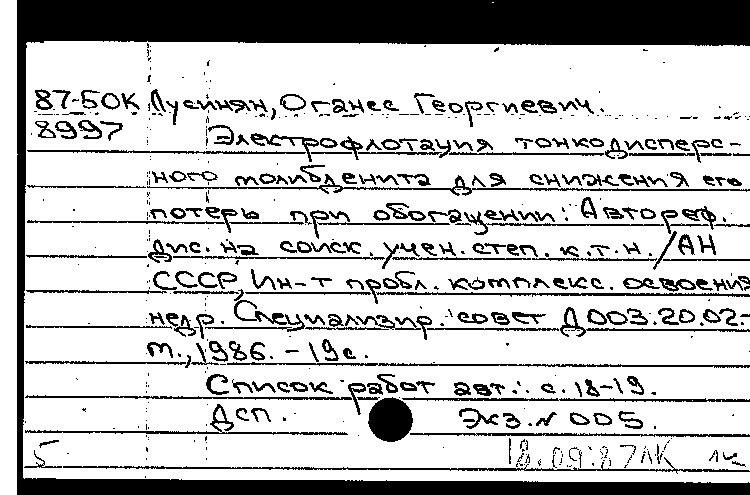 87-50К Лусинян, Оганес Георгиевич.
8997 Электрофлотация тонкодисперс-
ного молибденита для снижения его
потерь при обогащении: Автореф.
дис. на соиск. учен. степ. к.т.н. / АН
СССР, Ин-т пробл. комплекс. освоения
недр. Специализир. совет Д 003.20.02.-
М., 1986. - 19 с.
Список работ авт.: с. 18-19.
Дсп. Экз. № 005.
5 18.09.87